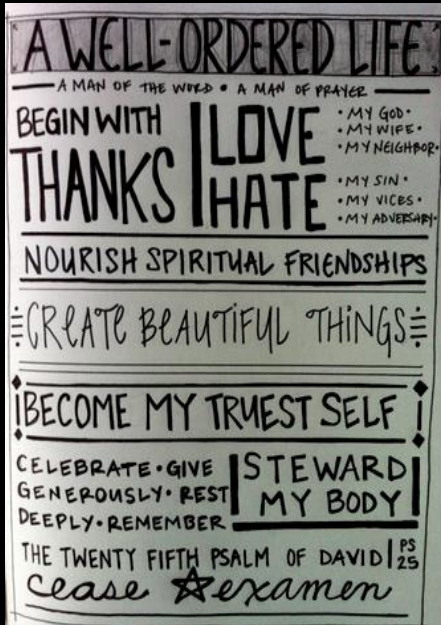 A WELL-ORDERED LIFE
A MAN OF THE WORD • A MAN OF PRAYER
BEGIN WITH
THANKS
LOVE
• MY GOD •
• MY WIFE •
• MY NEIGHBOR •
HATE
• MY SIN •
• MY VICES •
• MY ADVERSARY •
NOURISH SPIRITUAL FRIENDSHIPS
CREATE BEAUTIFUL THINGS
BECOME MY TRUEST SELF
CELEBRATE • GIVE
GENEROUSLY • REST
DEEPLY • REMEMBER
STEWARD
MY BODY
THE TWENTY FIFTH PSALM OF DAVID
PS
25
cease ☆ examen